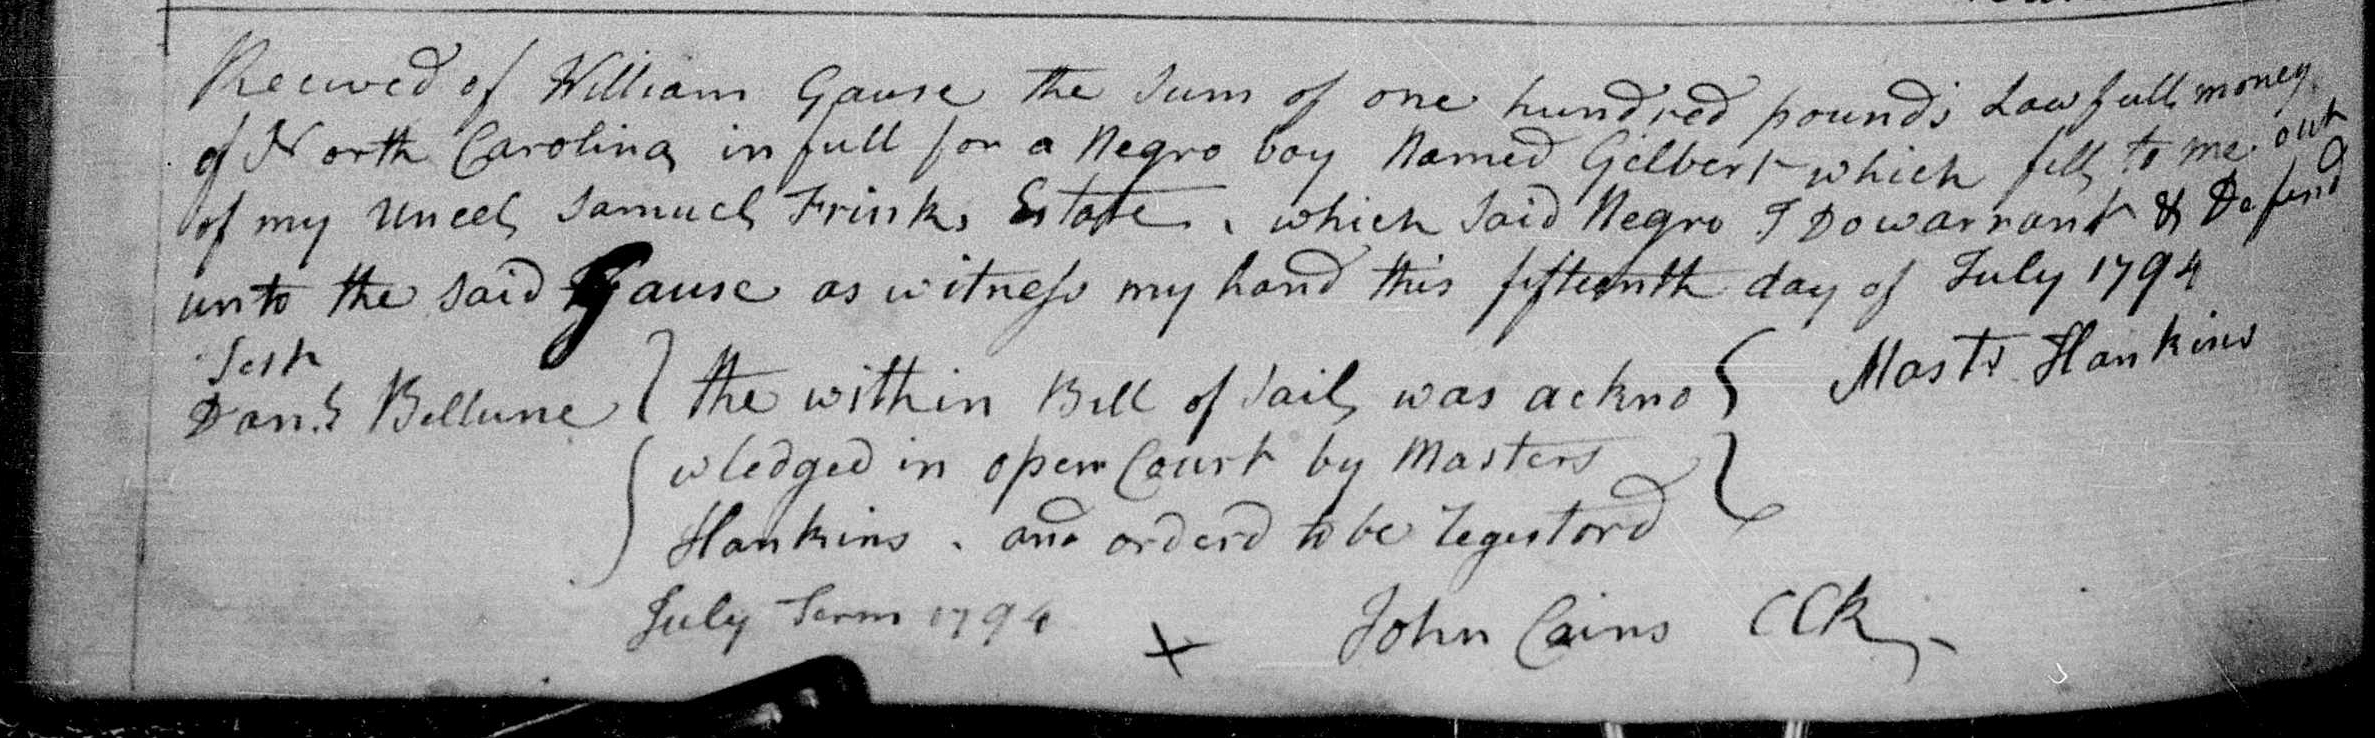 Received of William Gause the Sum of one hundred pounds Lawfull money
of North Carolina in full for a Negro boy Named Gilbert which fell to me out
of my Uncel Samuel Frinks Estate, which said Negro I Do warrant & Defend
unto the said Gause as witness my hand this fifteenth day of July 1794
Test
Masts Hankins
Danl. Bellune
the within Bill of Sail was ackno
wledged in open Court by Masters
Hankins. and orderd to be Regestord
July Term 1794
John Cains CCk